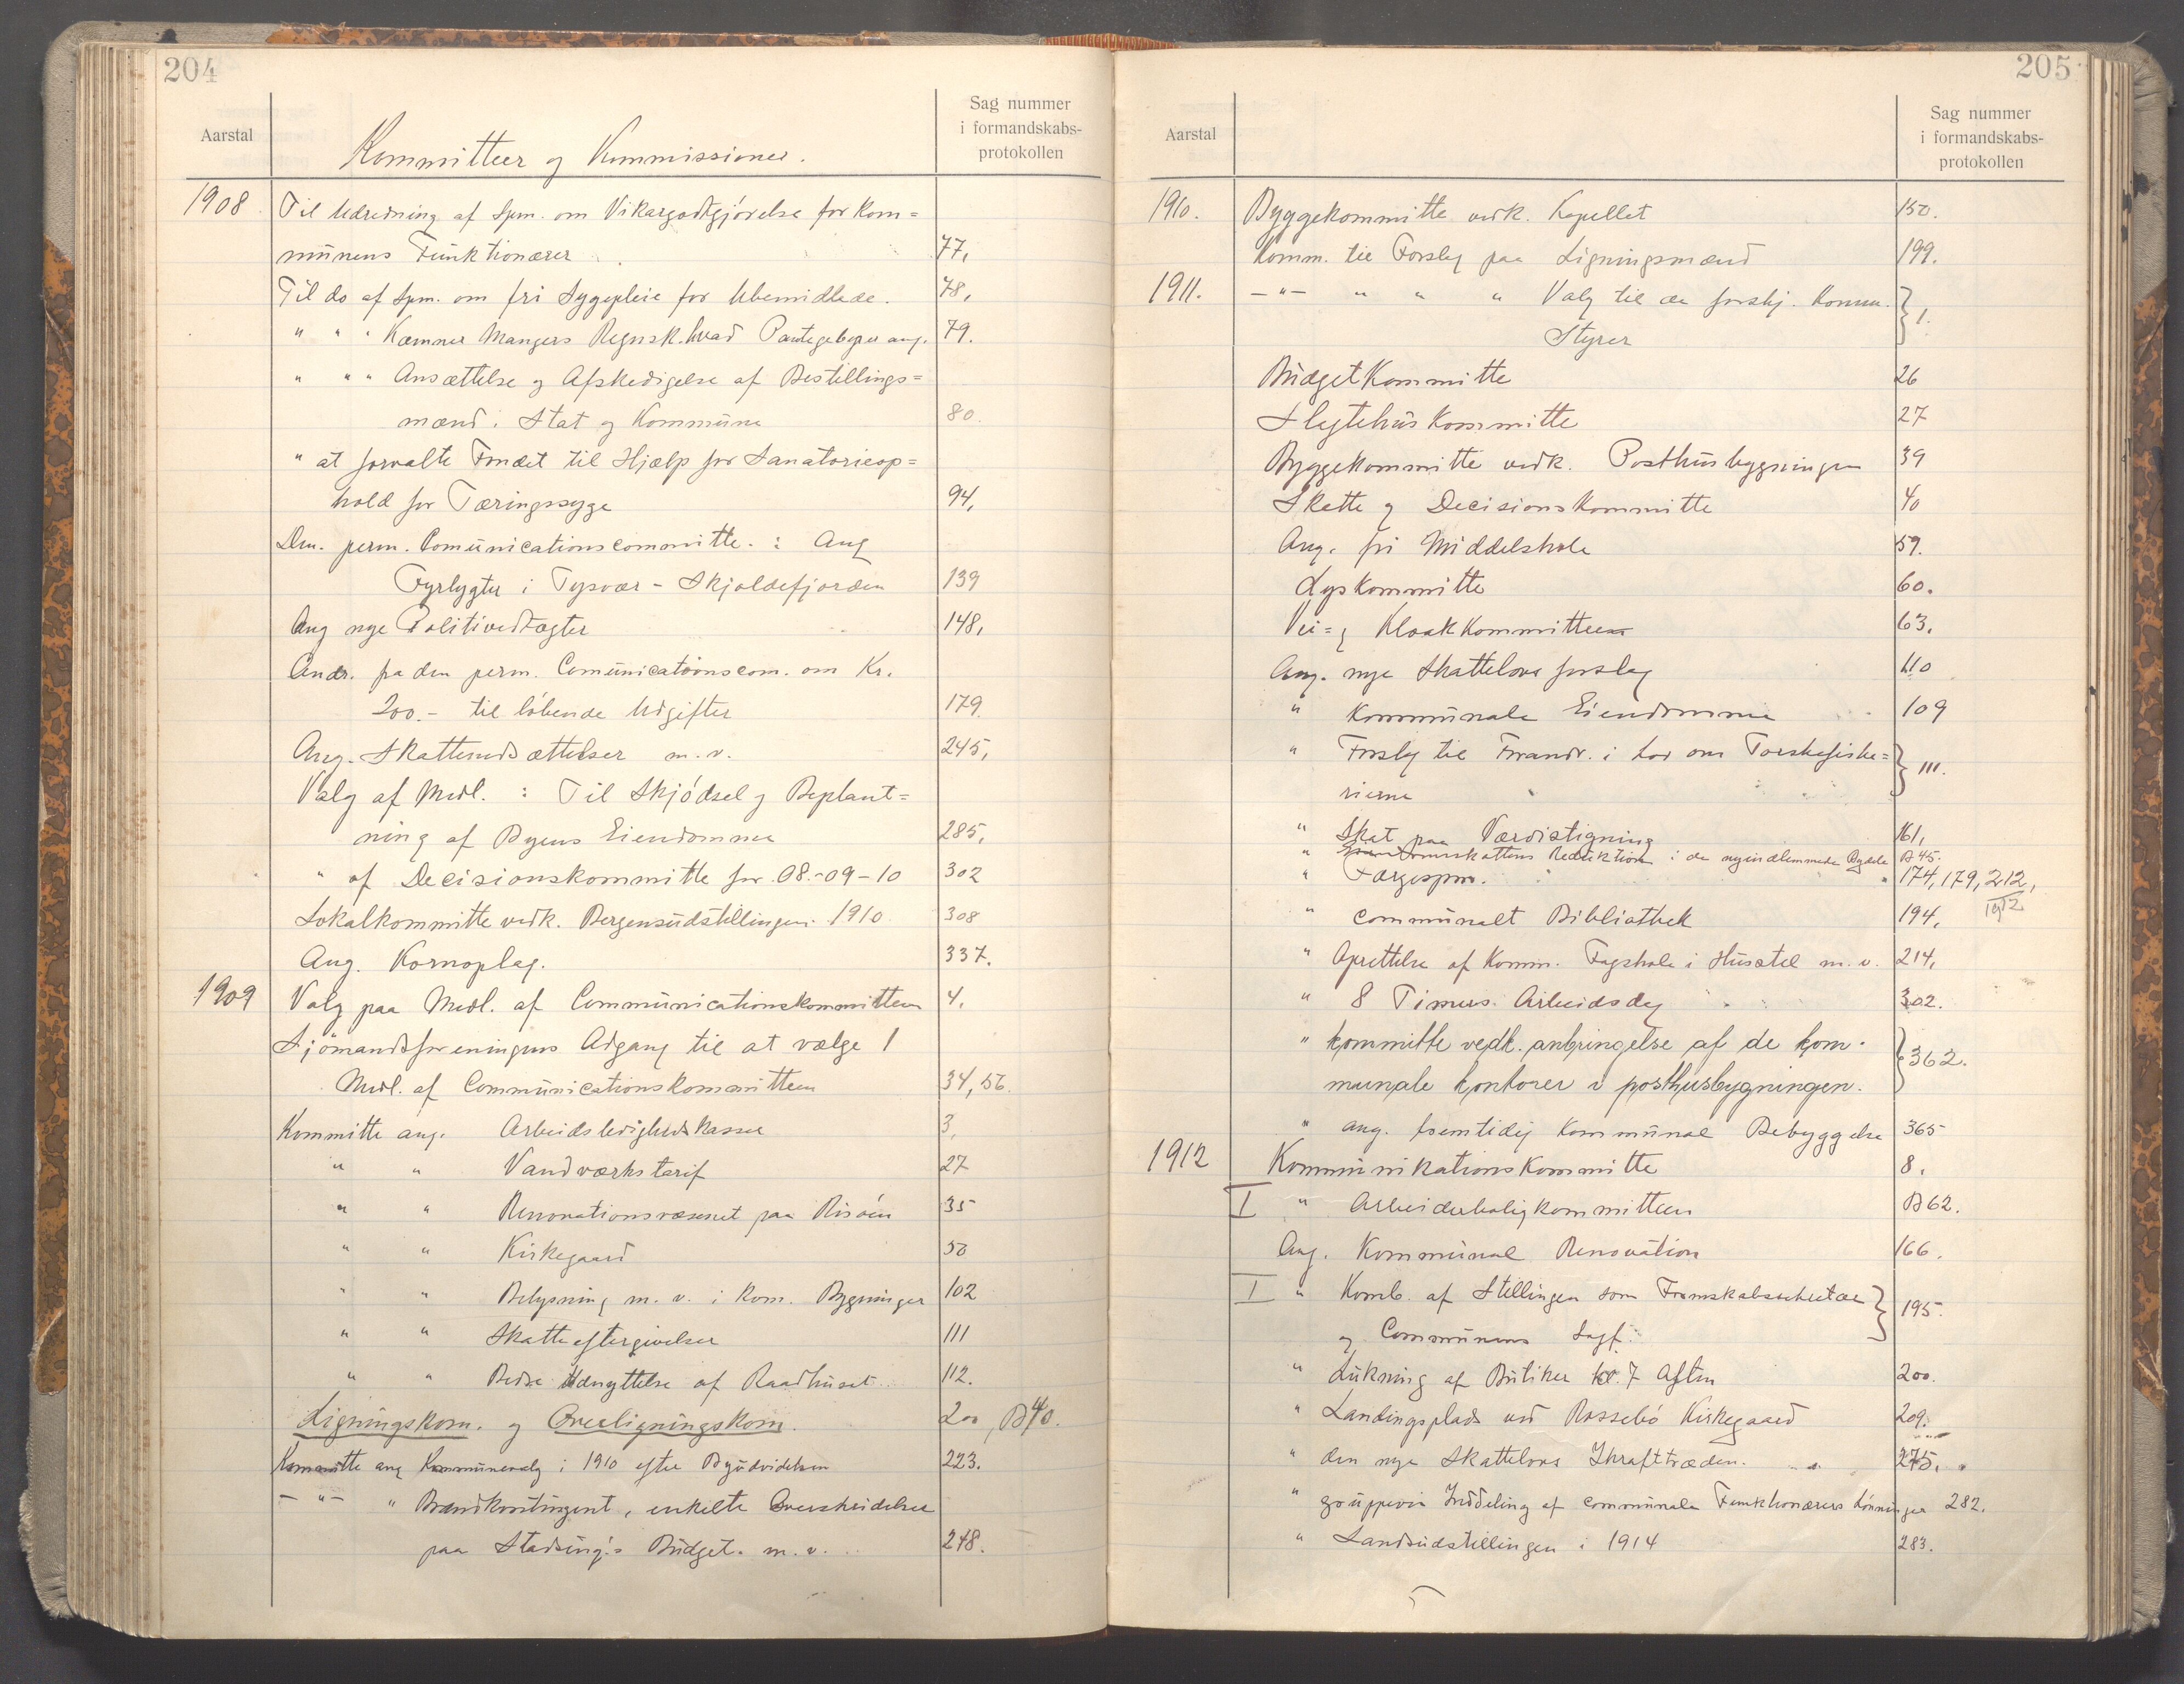 204
Aarstal
Kommitteer og Kommissioner.
Sag nummer
i formandskabs-
protokollen
1908 Til Udredning af Spm. om Vikargodtgjörelse for Kom=
munens Funktionærer 77,
Til do af Spm. om fri Sygepleie for Ubemidlede. 78,
" " " Kæmner Mangers Regnsk. hvad Pantegebyrer ang. 79.
" " " Ansættelse og Afskedigelse af Bestillings=
mænd i Stat og Kommune 80.
" at forvalte Fondet til Hjælp for Sanatorieop=
hold for Tæringssyge 94,
Den perm. Comunicationscommitte. : Ang
Fyrlygter i Tysvær - Skjoldefjorden 139
Ang nye Politivedtægter 148,
Andr. fra den perm. Comunicationscom. om Kr.
200.- til löbende Udgifter 179.
Ang. Skattenedsættelser m.v. 245,
Valg af Medl. : Til Skjödsel og Beplant=
ning af Byens Eiendomme 285,
" af Decisionskommitte for 08.-09-10 302
Lokalkommitte vedk. Bergensudstillingen 1910 308
Ang. Kornoplag. 337.
1909 Valg paa Medl. af Communicationskommitteen 4.
Sjömandsforeningens Adgang til at vælge 1
Medl. af Communicationskommitteen 34, 56.
Kommitte ang. Arbeidsledighedskasser 3.
" " Vandværkstarif 27
" " Renovationsvæsenet paa Risöen 35
" " Kirkegaard 50
" " Belysning m.v. i Kom. Bygninger 102
" " Skatteeftergivelser 111
" " Bedre Udnyttelse af Raadhuset 112.
Ligningskom. og Overligningskom. 200, B40.
Kommitte ang Kommunevalg i 1910 efter Byudvidelsen 223.
- " - " Brandkontingent, enkelte Overskridelser
paa Stadsing's Budget. m.v. 248.
205
Aarstal
Sag nummer
i formandskabs-
protokollen
1910. Byggekommitte vedk. Kapellet 150.
Komm. til Forslag paa Ligningsmænd 199.
1911. - " - " " " Valg til de forskj. Komm. } 1.
Styrer
Budgetkommitte 26
Slagtehuskommitte 27
Byggekommitte vedk. Posthusbygningen 39
Skatte og Decisionskommitte 40
Ang. fri Middelskole 59.
Lyskommitte 60.
Vei= og Kloakkommitteen 63.
Ang. nye Skattelovsforslag 110
" Kommunale Eiendomme 109
" Forslag til Forandr. i Lov om Torskefiske= } 111.
rierne
" Skat paa Værdistigning 161,
" skattens Reduktion i de nyindlemmede Bydele B45.
" Færgespm. 174, 179, 212,
1912
" communalt Bibliothek 194,
" Oprettelse af Komm. Fagskole i Husstel m.v. 214,
" 8 Timers Arbeidsdag 302.
" kommitte vedk. anbringelse af de kom- } 362.
munale kontorer i posthusbygningen.
" ang. fremtidig Kommunal Bebyggelse 365
1912 Kommunikationskommitte 8.
I " Arbeiderboligkommitteen B62.
Ang. Kommunal Renovation 166.
I " Komb. af Stillingen som Formskabssekretær } 195.
og Communens Sagf.
" Lukning af Butiker kl. 7 Aften 200.
" Landingsplads ved Rossebö Kirkegaard 209.
" den nye Skattelovs Ikrafttræden. 275.
" gruppevis Inddeling af communale Funktionærers Lönninger 282.
" Landsudstillingen i 1914 283.